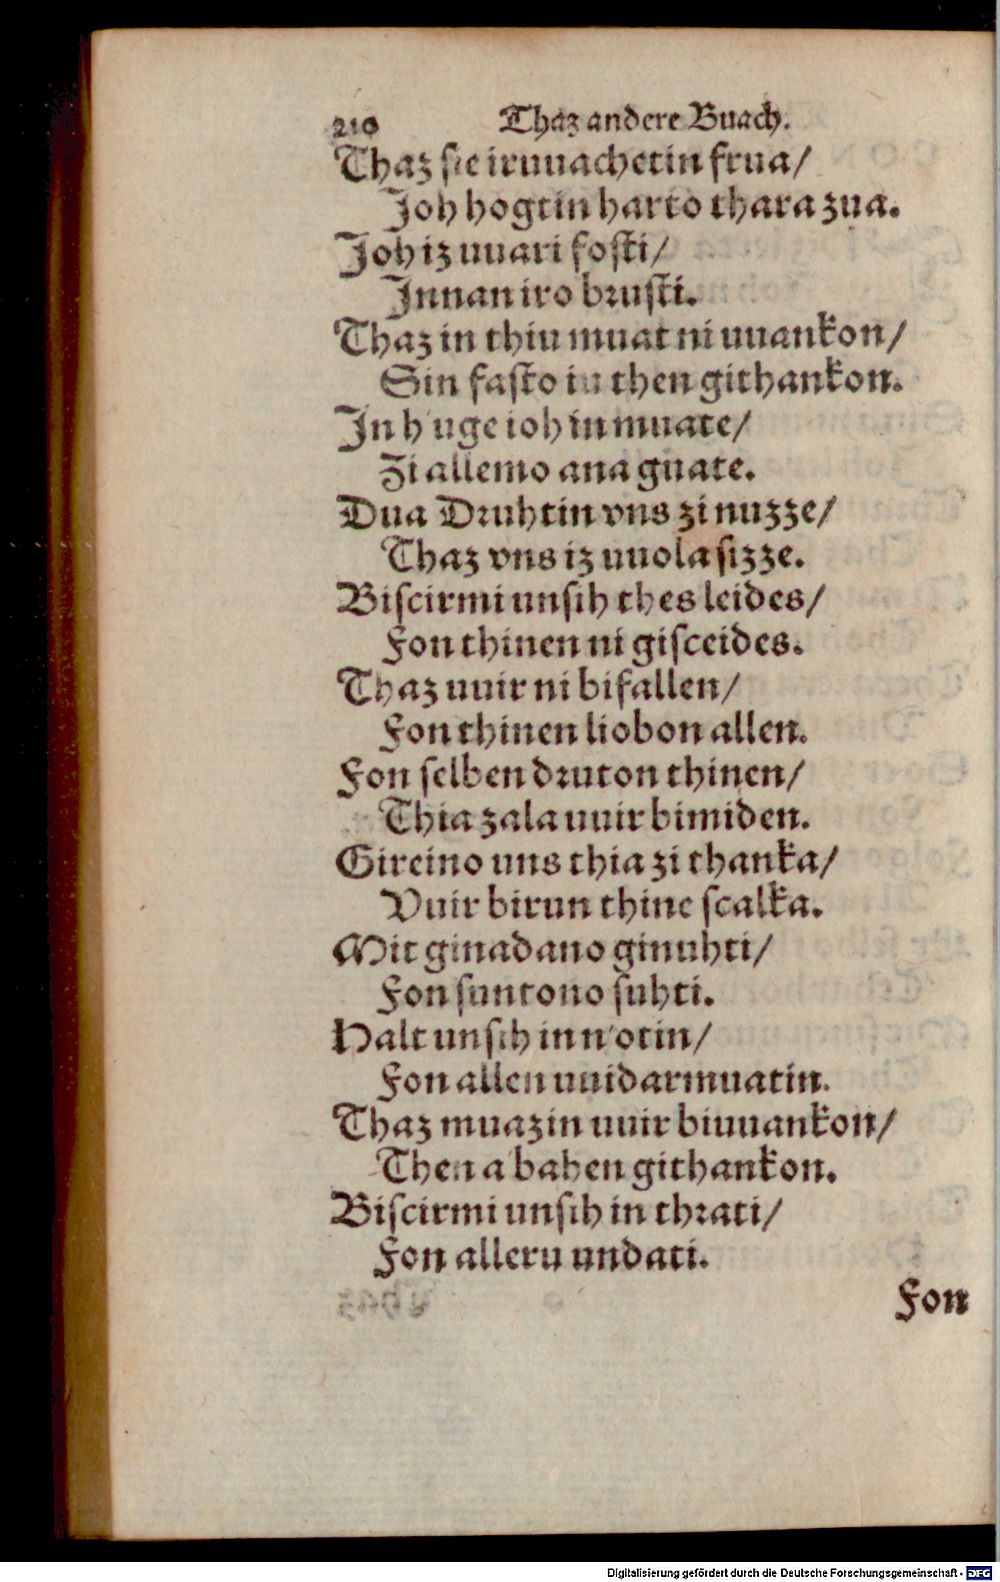 210 Thaz andere Buach.
Thaz sie iruuachetin frua/
Joh hogtin harto thara zua.
Joh iz uuari fosti/
Innan iro brusti.
Thaz in thiu muat ni uuankon/
Sin fasto in then githankon.
In h'uge ioh in muate/
Zi allemo ana guate.
Dua Druhtin vns zi nuzze/
Thaz vns iz uuola sizze.
Biscirmi unsih thes leides/
Fon thinen ni gisceides.
Thaz uuir ni bifallen/
Fon thinen liobon allen.
Fon selben druton thinen/
Thia zala uuir bimiden.
Gireino uns thia zi thanka/
Vuir birun thine scalka.
Mit ginadano ginuhti/
Fon suntono suhti.
Halt unsih in n'otin/
Fon allen uuidarmuatin.
Thaz muazin uuir biuuankon/
Then a'bahen githankon.
Biscirmi unsih in thrati/
Fon alleru undati.
Fon
Digitalisierung gefördert durch die Deutsche Forschungsgemeinschaft - DFG